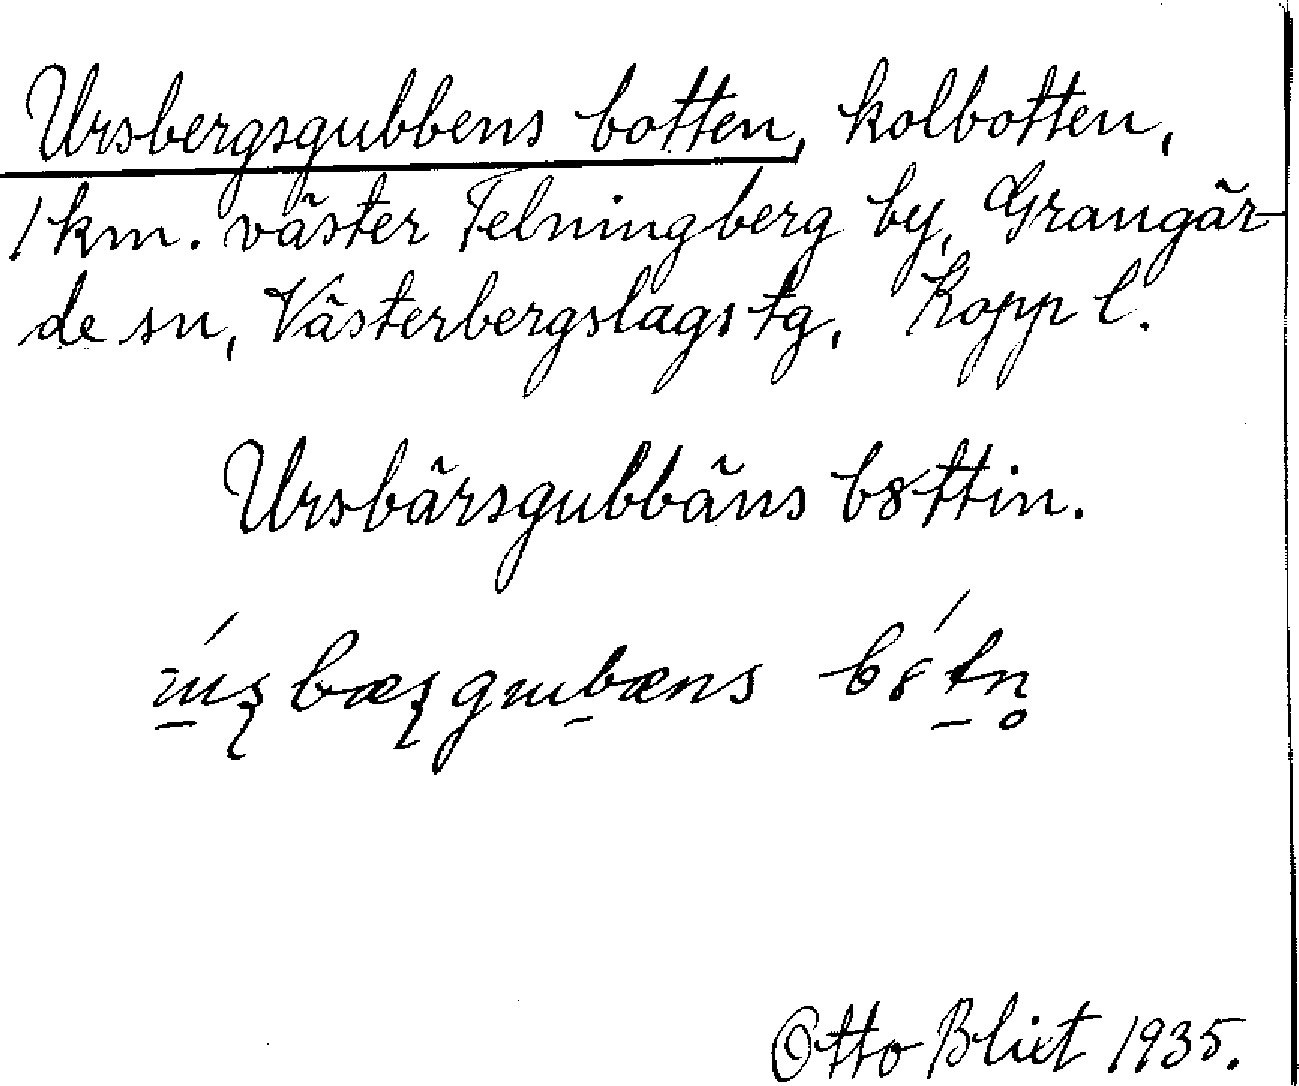 Ursbergsgubbens botten, kolbotten,
1 km. väster Telningberg by, Grangär-
de sn, Västerbergslags tg, Kopp l.
Ursbärsgubbäns b8ttin.
Otto Blixt 1935.